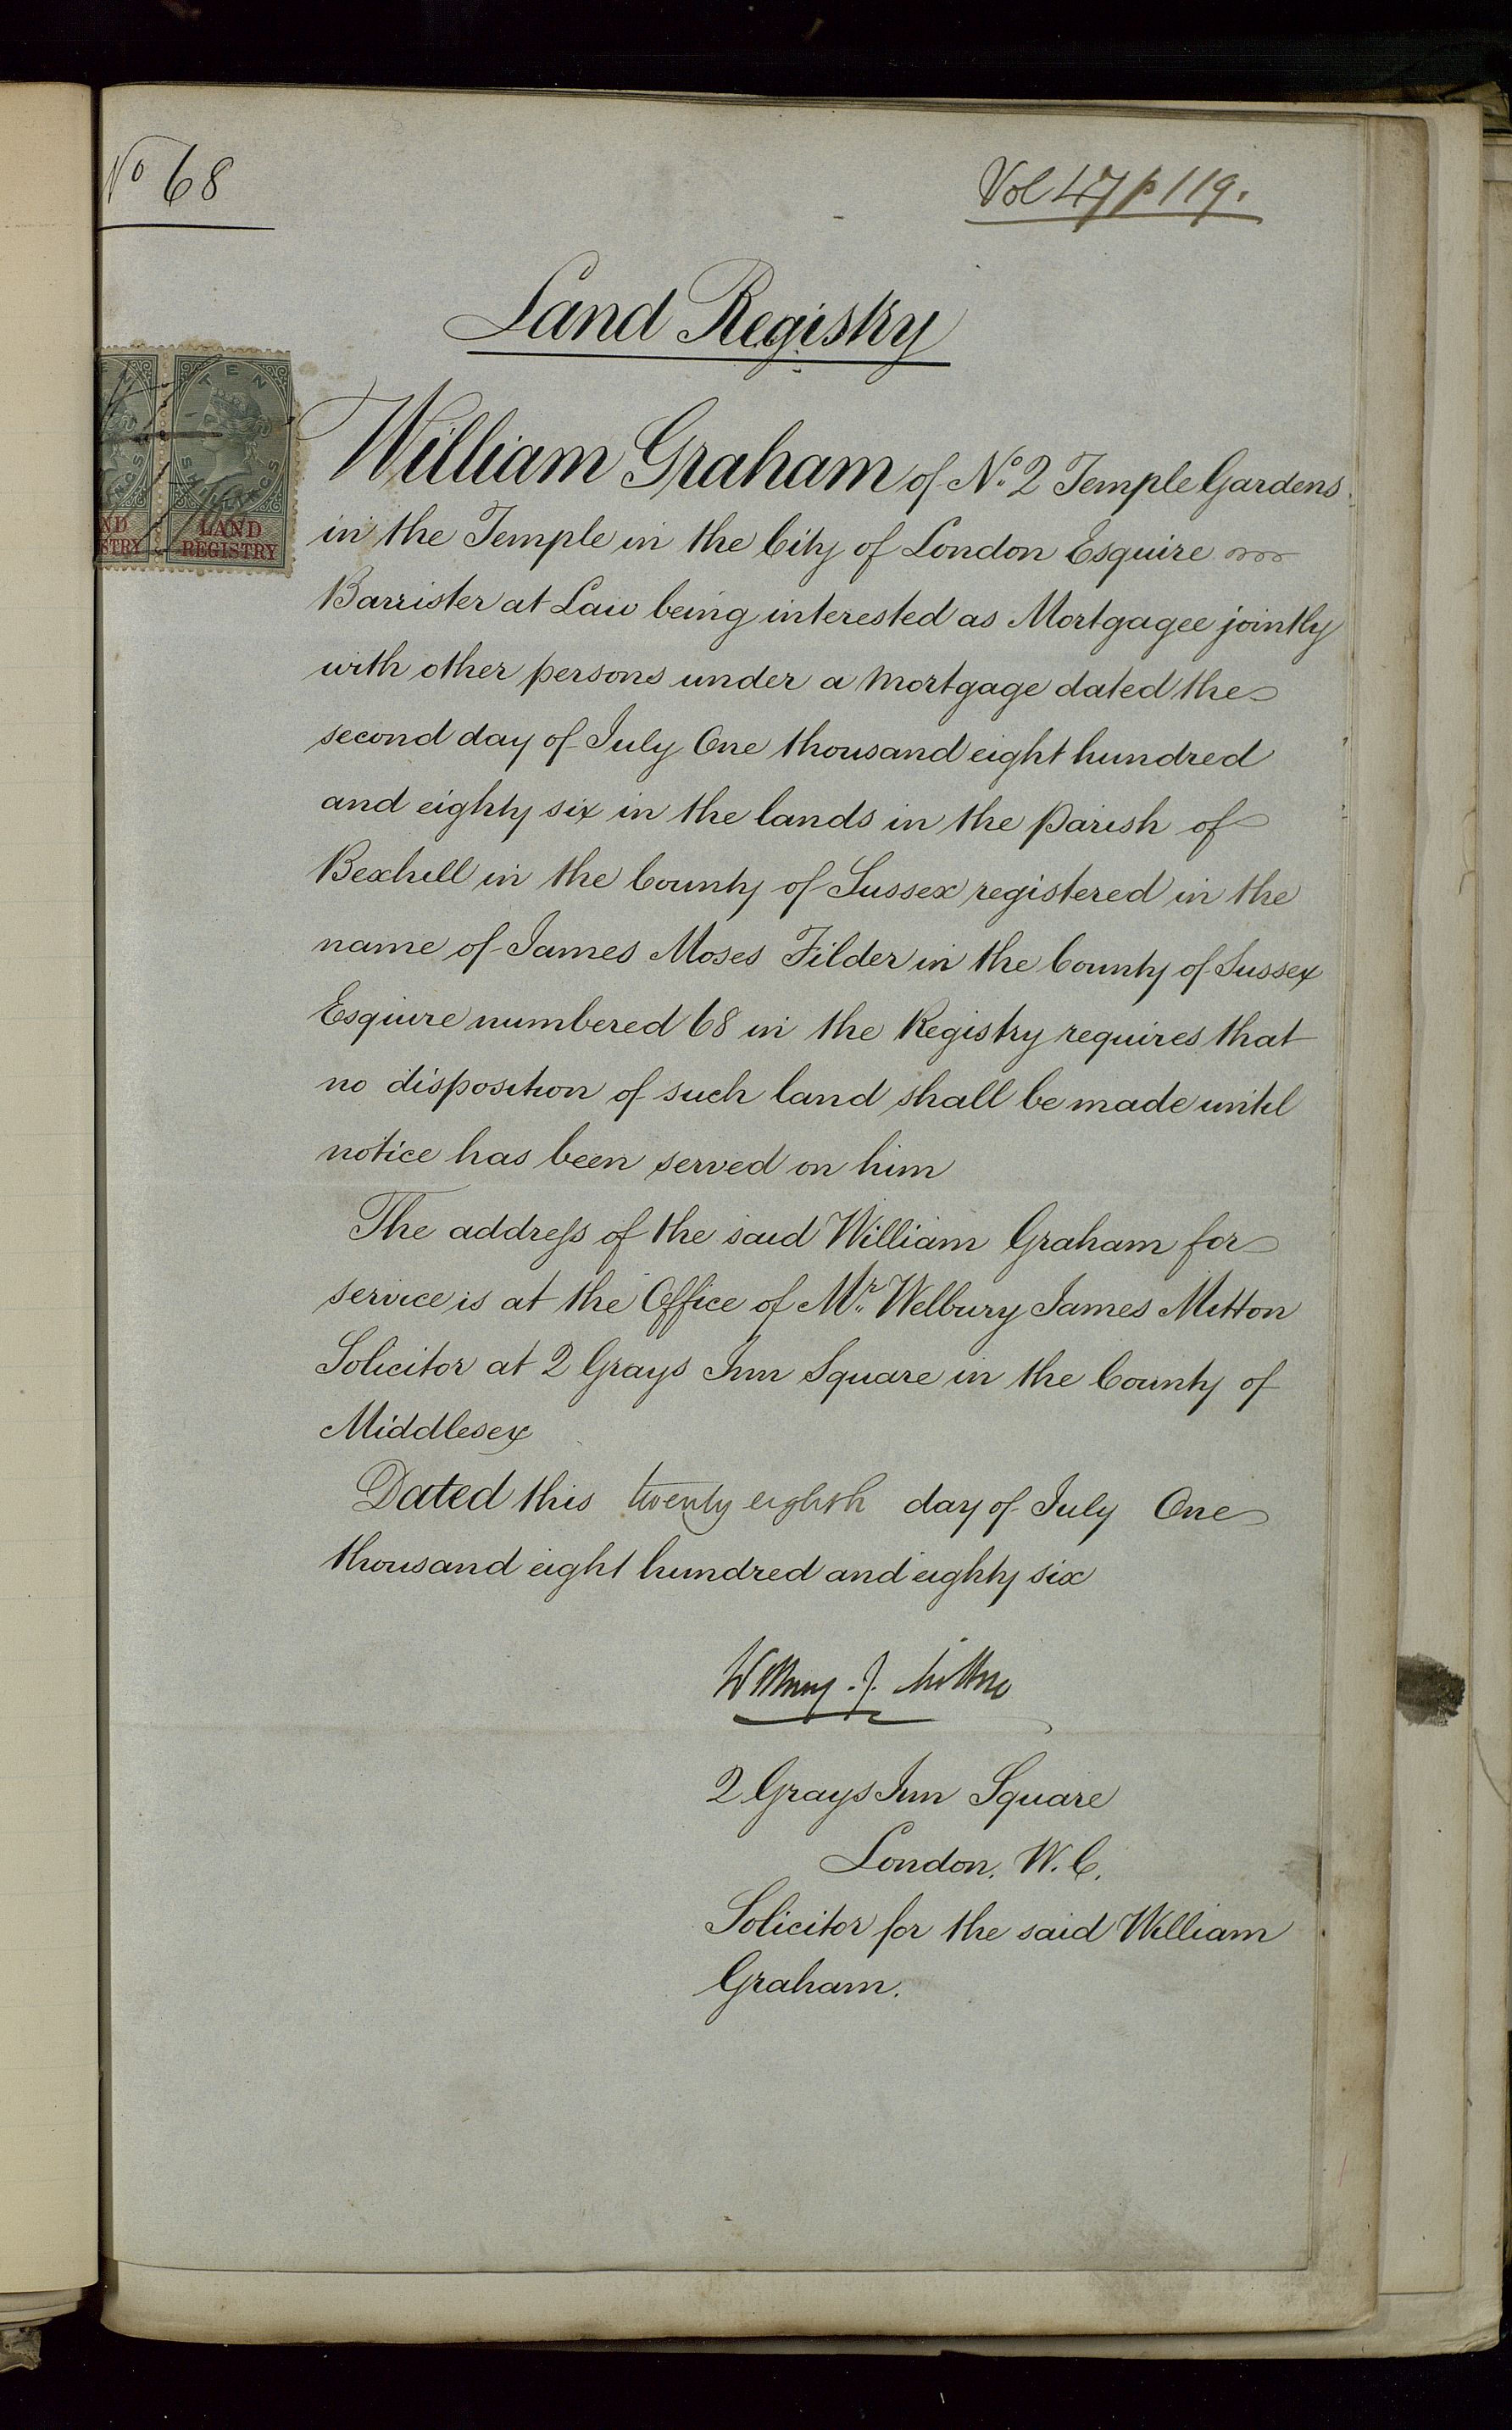 No 68
Vol 47 p 119.
Land Registry
TEN
SHILLINGS
ND
STRY
LAND
REGISTRY
William Graham of No. 2 Temple Gardens
in the Temple in the City of London Esquire
Barrister at Law being interested as Mortgagee jointly
with other persons under a mortgage dated the
second day of July One thousand eight hundred
and eighty six in the lands in the parish of
Bexhill in the County of Sussex registered in the
name of James Moses Filder in the County of Sussex
Esquire numbered 68 in the Registry requires that
no disposition of such land shall be made until
notice has been served on him
The address of the said William Graham for
service is at the Office of Mr. Welbury James Mitton
Solicitor at 2 Grays Inn Square in the County of
Middlesex
Dated this twenty eighth day of July One
thousand eight hundred and eighty six
Welbury. J. Mitton
2 Grays Inn Square
London. W.C.
Solicitor for the said William
Graham.